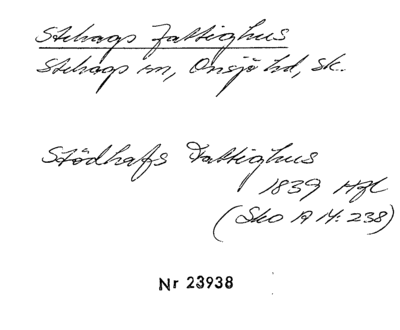 Stehags Fattighus
Stehags sn, Onsjö hd, Sk.
Stödhafs Fattighus
1839 Hfl
(Sko A IV: 238)
Nr 23938